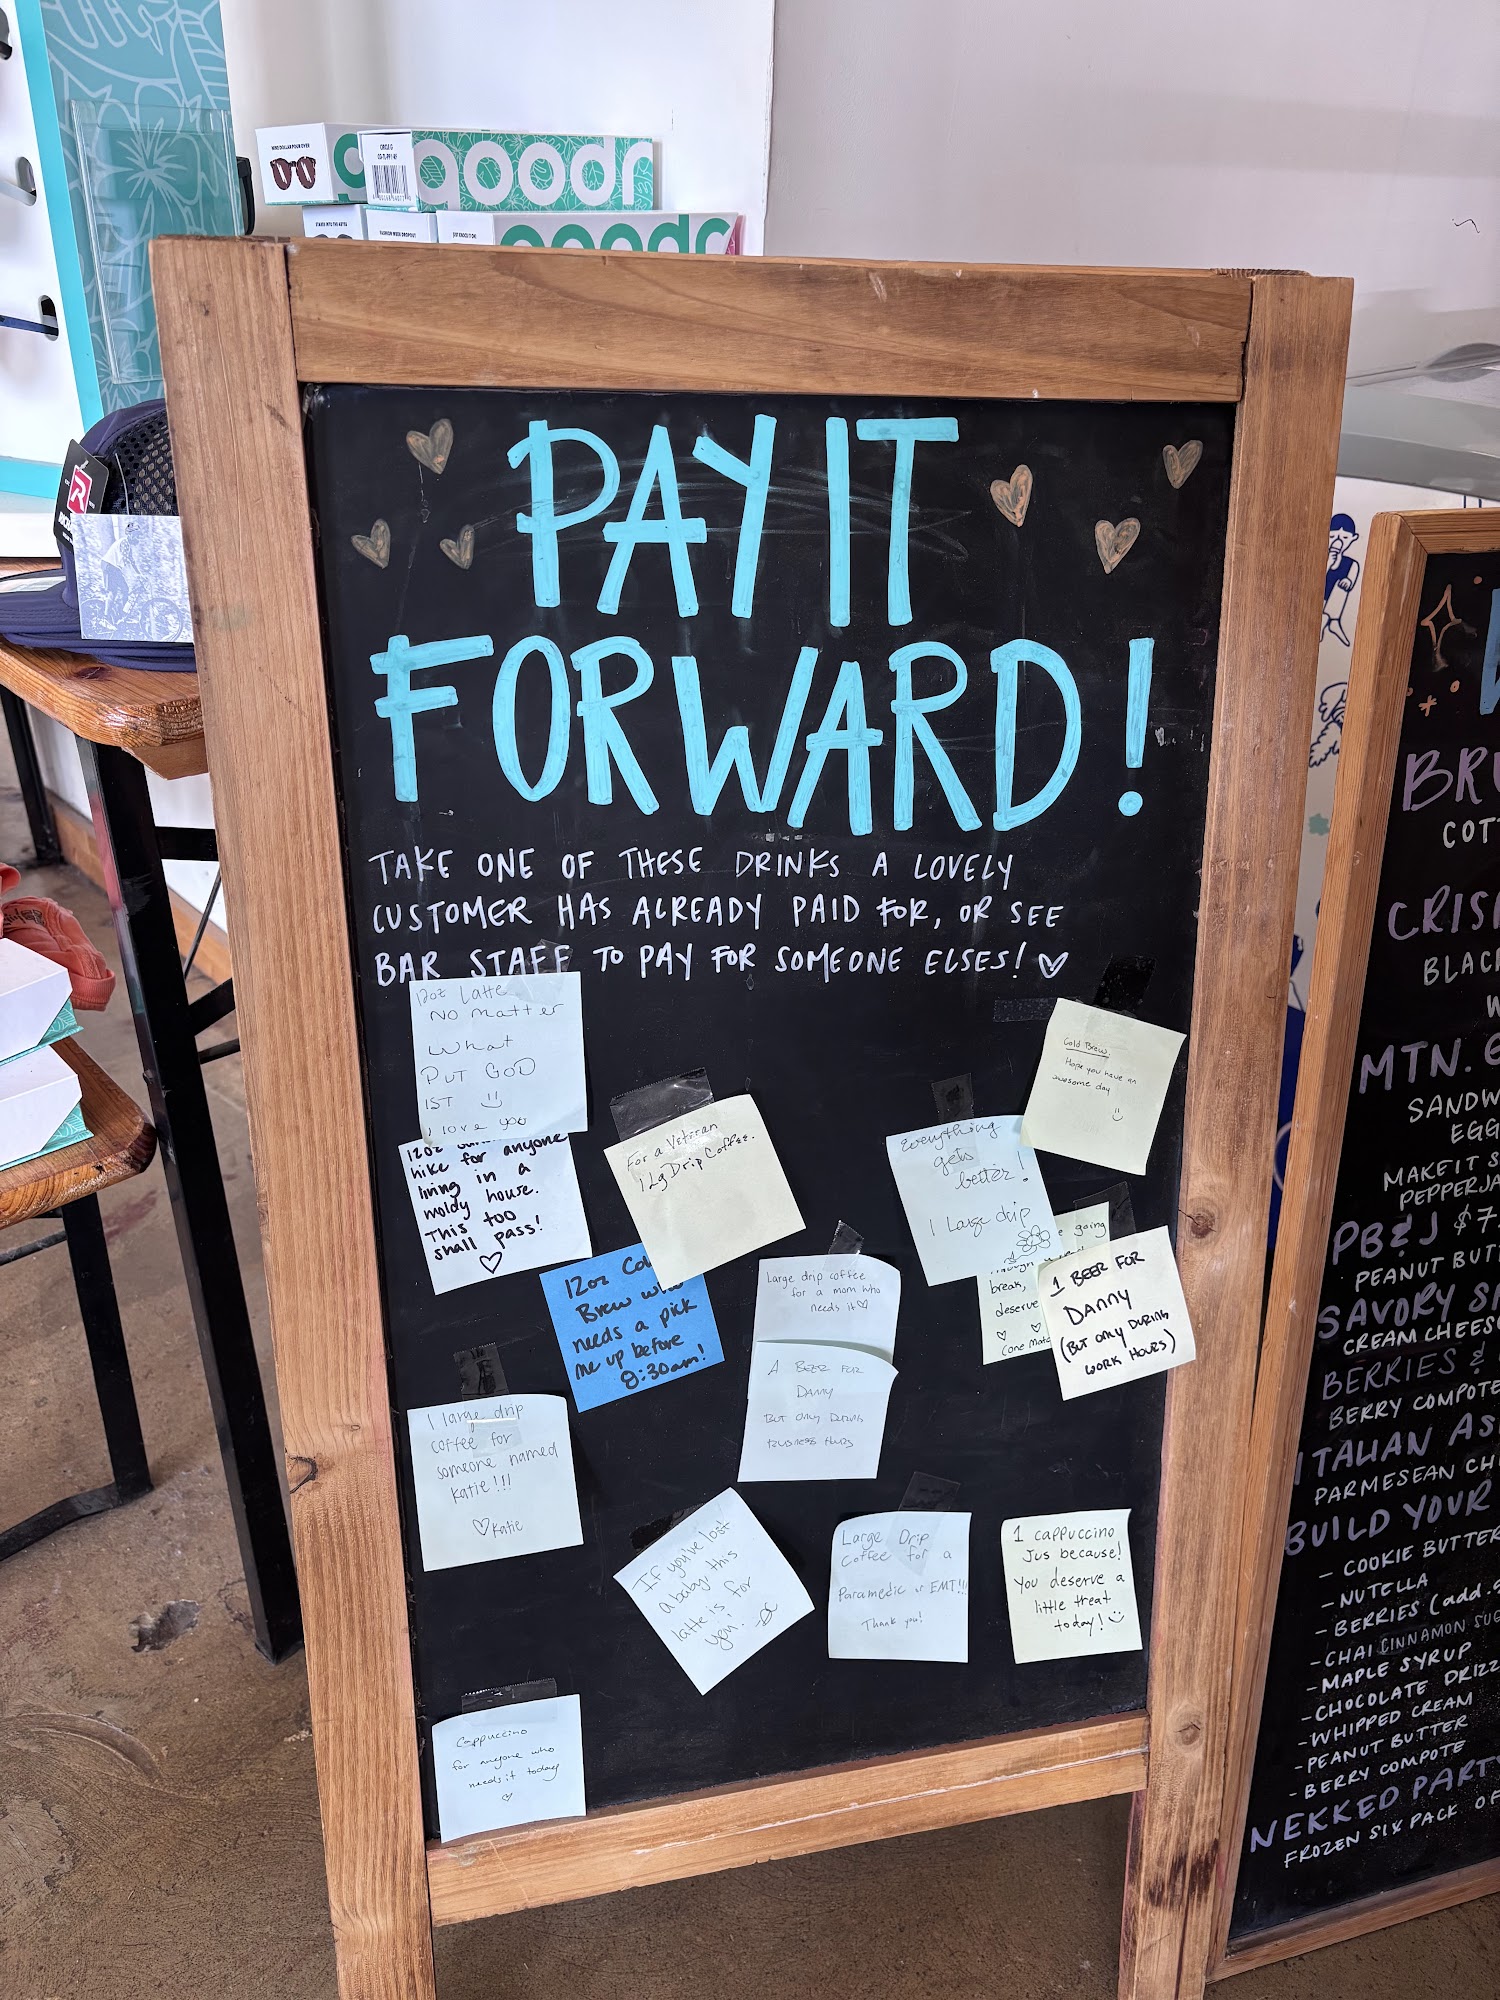 goodr
goodr
PAY IT
FORWARD!
TAKE ONE OF THESE DRINKS A LOVELY
CUSTOMER HAS ALREADY PAID FOR, OR SEE
BAR STAFF TO PAY FOR SOMEONE ELSES!
12oz Latte
No matter
what
PUT GOD
1ST
I love you
12oz
hike for anyone
living in a
moldy house.
This too
shall pass!
For a Veteran
1 Lg Drip Coffee.
Everything
gets
better!
1 Large drip
Cold Brew.
Hope you have an
awesome day
12oz Cold
Brew who
needs a pick
me up before
8:30am!
Large drip coffee
for a mom who
needs it
going
break,
deserve
1 BEER FOR
DANNY
(BUT ONLY DURING
WORK HOURS)
A BEER FOR
DANNY
BUT ONLY DURING
BUSINESS HOURS
1 large drip
coffee for
someone named
Katie!!!
Katie
If you've lost
a baby, this
latte is for
you!
Large Drip
Coffee for a
Paramedic or EMT!!!
Thank you!
1 cappuccino
Jus because!
You deserve a
little treat
today!
Cappuccino
for anyone who
needs it today
BRU
COTT
CRISP
BLAC
MTN.
SANDW
EGG
MAKE IT S
PEPPERJA
PB & J $7
PEANUT BUTTE
SAVORY S
CREAM CHEES
BERRIES &
BERRY COMPOTE
ITALIAN AS
PARMESEAN CH
BUILD YOUR
- COOKIE BUTTER
- NUTELLA
- BERRIES (add
- CHAI CINNAMON SUG
- MAPLE SYRUP
- CHOCOLATE DRIZZ
- WHIPPED CREAM
- PEANUT BUTTER
- BERRY COMPOTE
NEKKED PARTY
FROZEN SIX PACK OF